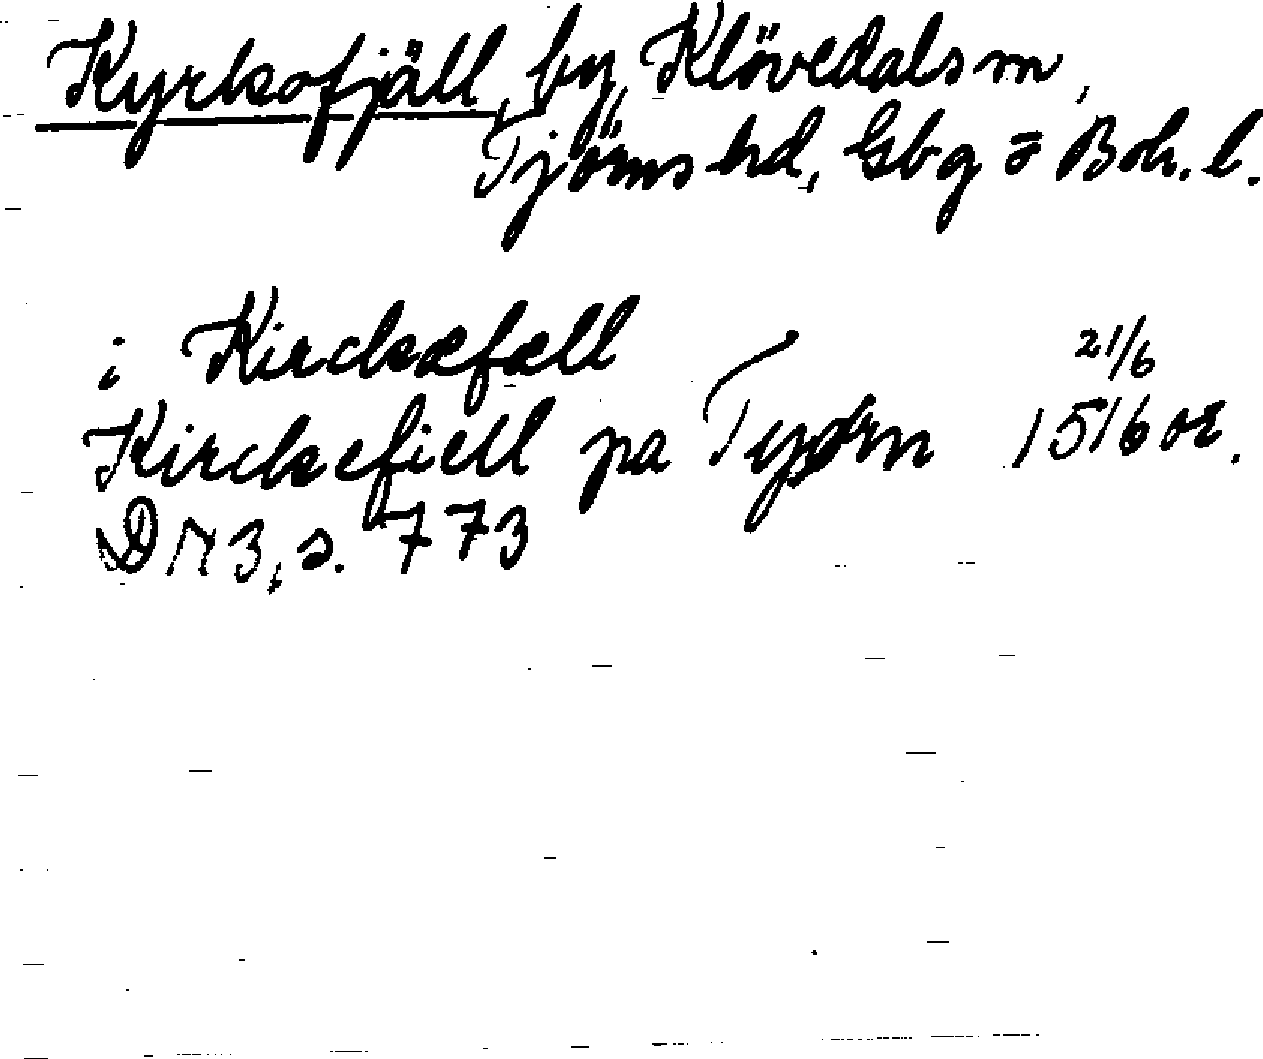 Kyrkofjäll, by, Klövedals sn,
Tjörns hd, Gbg o Boh. l.
i Kirckæfæll 21/6
Kirckefiell pa Tyørn 1516 or.
DN 3, s. 773